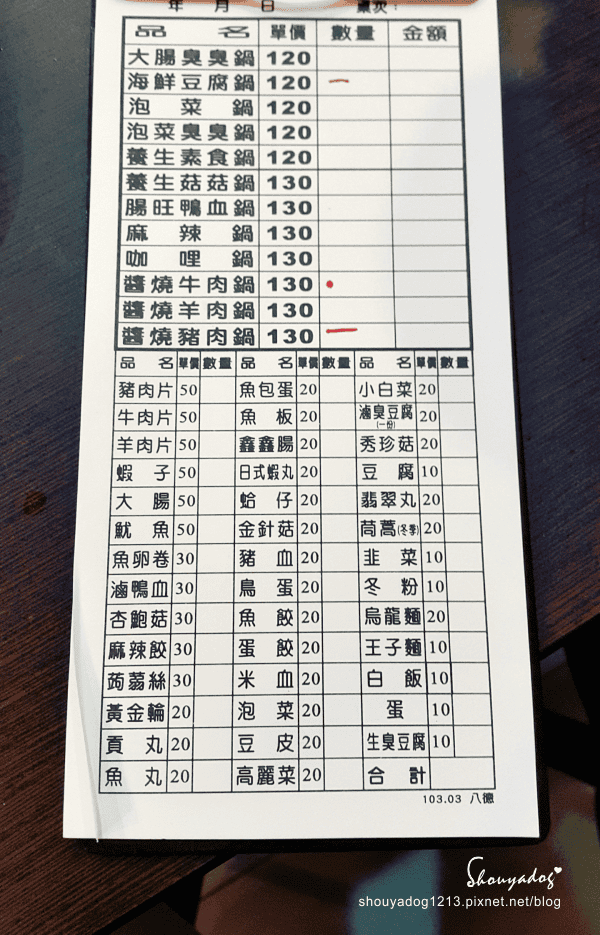 年 月 日 桌次：
品名 單價 數量 金額
大腸臭臭鍋 120
海鮮豆腐鍋 120 一
泡菜鍋 120
泡菜臭臭鍋 120
養生素食鍋 120
養生菇菇鍋 130
腸旺鴨血鍋 130
麻辣鍋 130
咖哩鍋 130
醬燒牛肉鍋 130
醬燒羊肉鍋 130
醬燒豬肉鍋 130 一
品名 單價 數量 品名 單價 數量 品名 單價 數量
豬肉片 50 魚包蛋 20 小白菜 20
牛肉片 50 魚板 20 滷臭豆腐(一份) 20
羊肉片 50 鑫鑫腸 20 秀珍菇 20
蝦子 50 日式蝦丸 20 豆腐 10
大腸 50 蛤仔 20 翡翠丸 20
魷魚 50 金針菇 20 茼蒿(冬季) 20
魚卵卷 30 豬血 20 韭菜 10
滷鴨血 30 鳥蛋 20 冬粉 10
杏鮑菇 30 魚餃 20 烏龍麵 20
麻辣餃 30 蛋餃 20 王子麵 10
蒟蒻絲 30 米血 20 白飯 10
黃金輪 20 泡菜 20 蛋 10
貢丸 20 豆皮 20 生臭豆腐 10
魚丸 20 高麗菜 20 合計
103.03 八德
Shouyadog
shouyadog1213.pixnet.net/blog